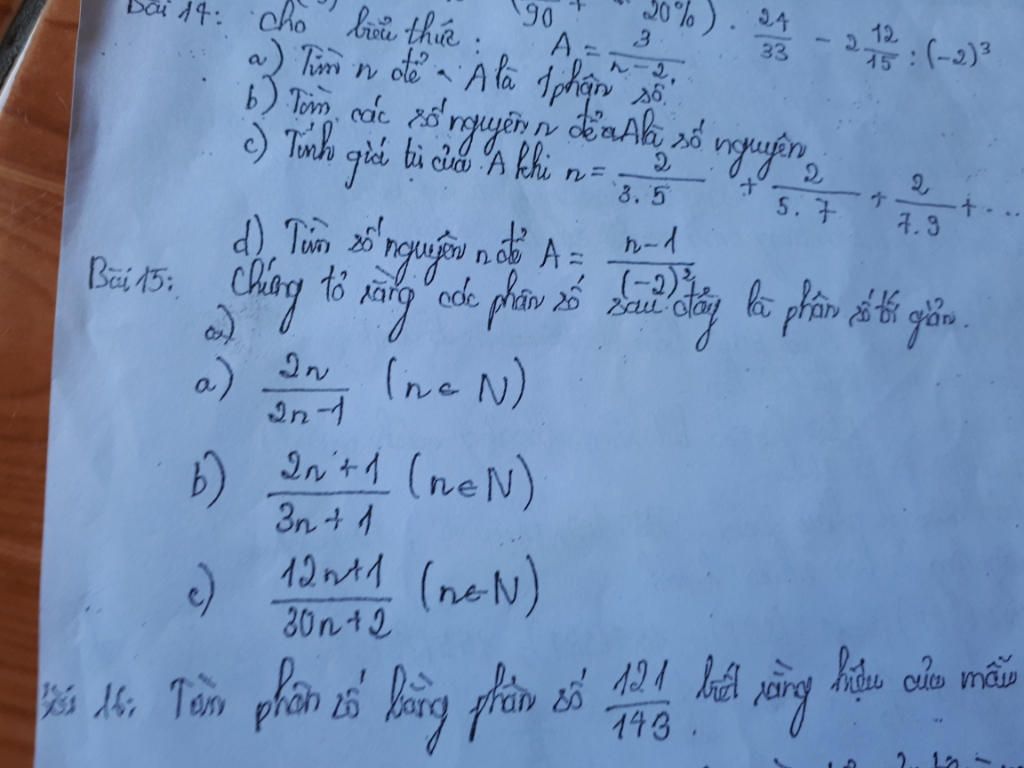 90 + 20%) . 24/33 - 2 12/15 : (-2)³
Bài 14: Cho biểu thức: A = 3/(n-2).
a) Tìm n để A là 1 phân số.
b) Tìm các số nguyên n để A là số nguyên
c) Tính giá trị của A khi n = 2/(3.5) + 2/(5.7) + 2/(7.9) + ...
d) Tìm số nguyên n để A = (n-1)/(-2)²
Bài 15: Chứng tỏ rằng các phân số sau đây là phân số tối giản.
a)
a) 2n/(2n-1) (n ∈ N)
b) (2n+1)/(3n+1) (n ∈ N)
c) (12n+1)/(30n+2) (n ∈ N)
16: Tìm phân số bằng phân số 121/143. biết rằng hiệu của mẫu